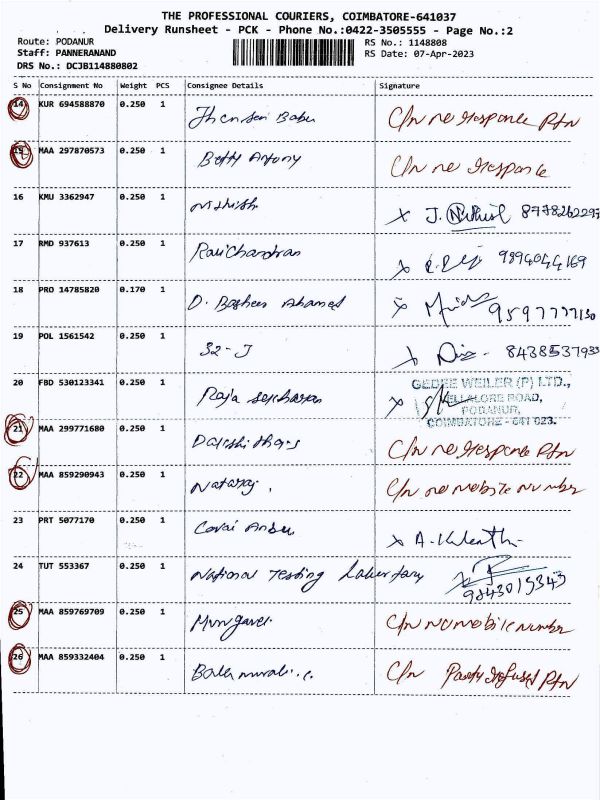 THE PROFESSIONAL COURIERS, COIMBATORE-641037
Delivery Runsheet - PCK - Phone No.:0422-3505555 - Page No.:2
Route: PODANUR
Staff: PANNERANAND
DRS No.: DCJB114880802
RS No.: 1148808
RS Date: 07-Apr-2023
S No Consignment No Weight PCS Consignee Details Signature
14 KUR 694588870 0.250 1 Jhensen Babu C/n no response Rtn
15 MAA 297870573 0.250 1 Betty Antony C/n no response
16 KMU 3362947 0.250 1 Nithish x J. 8778262297
17 RMD 937613 0.250 1 Ravichandran x 9894044169
18 PRO 14785820 0.170 1 D. Basheer Ahamed x 9597777130
19 POL 1561542 0.250 1 32-J x 8438537933
20 FBD 530123341 0.250 1 Raja x
GEDEE WEILER (P) LTD.,
VELLALORE ROAD,
PODANUR,
COIMBATORE - 641 023.
21 MAA 299771680 0.250 1 C/n no response Rtn
22 MAA 859290943 0.250 1 Nataraj. C/n no mobile number
23 PRT 5077170 0.250 1 Covai Anbu x A.
24 TUT 553367 0.250 1 National Testing Laboratory x 9843015343
25 MAA 859769709 0.250 1 C/n no mobile number
26 MAA 859332404 0.250 1 Balamurali. C/n Party refused Rtn